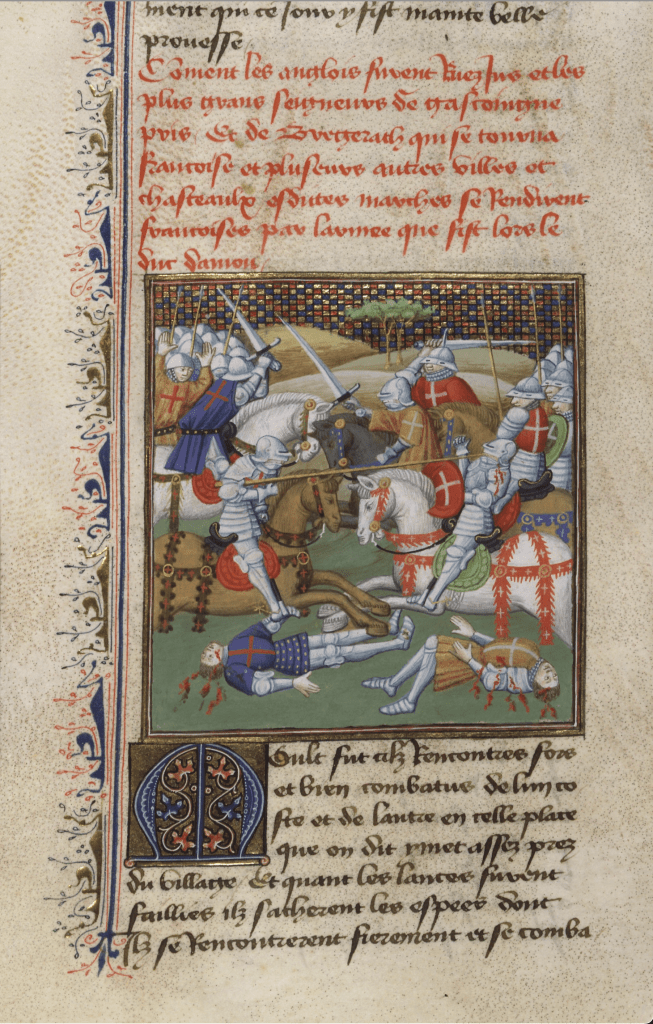 ment qui ce jour y fist mainte belle
prouesse
Coment les anglois furent Ruez Jus et les
plus grans seigneurs de gascoingne
pris Et de Bregerach qui se tourna
francoise et pluseurs autres villes et
chasteaulx esdittes marches se Rendirent
francoises par larmee que fist lors le
duc danjou
Moult fut cilz Rencontres fors
et bien combatus de lun co
ste et de lautre en celle place
que on dit ymet assez prez
du village Et quant les lances furent
faillies ilz sacherent les espees dont
ilz se Rencontrerent fierement et se comba